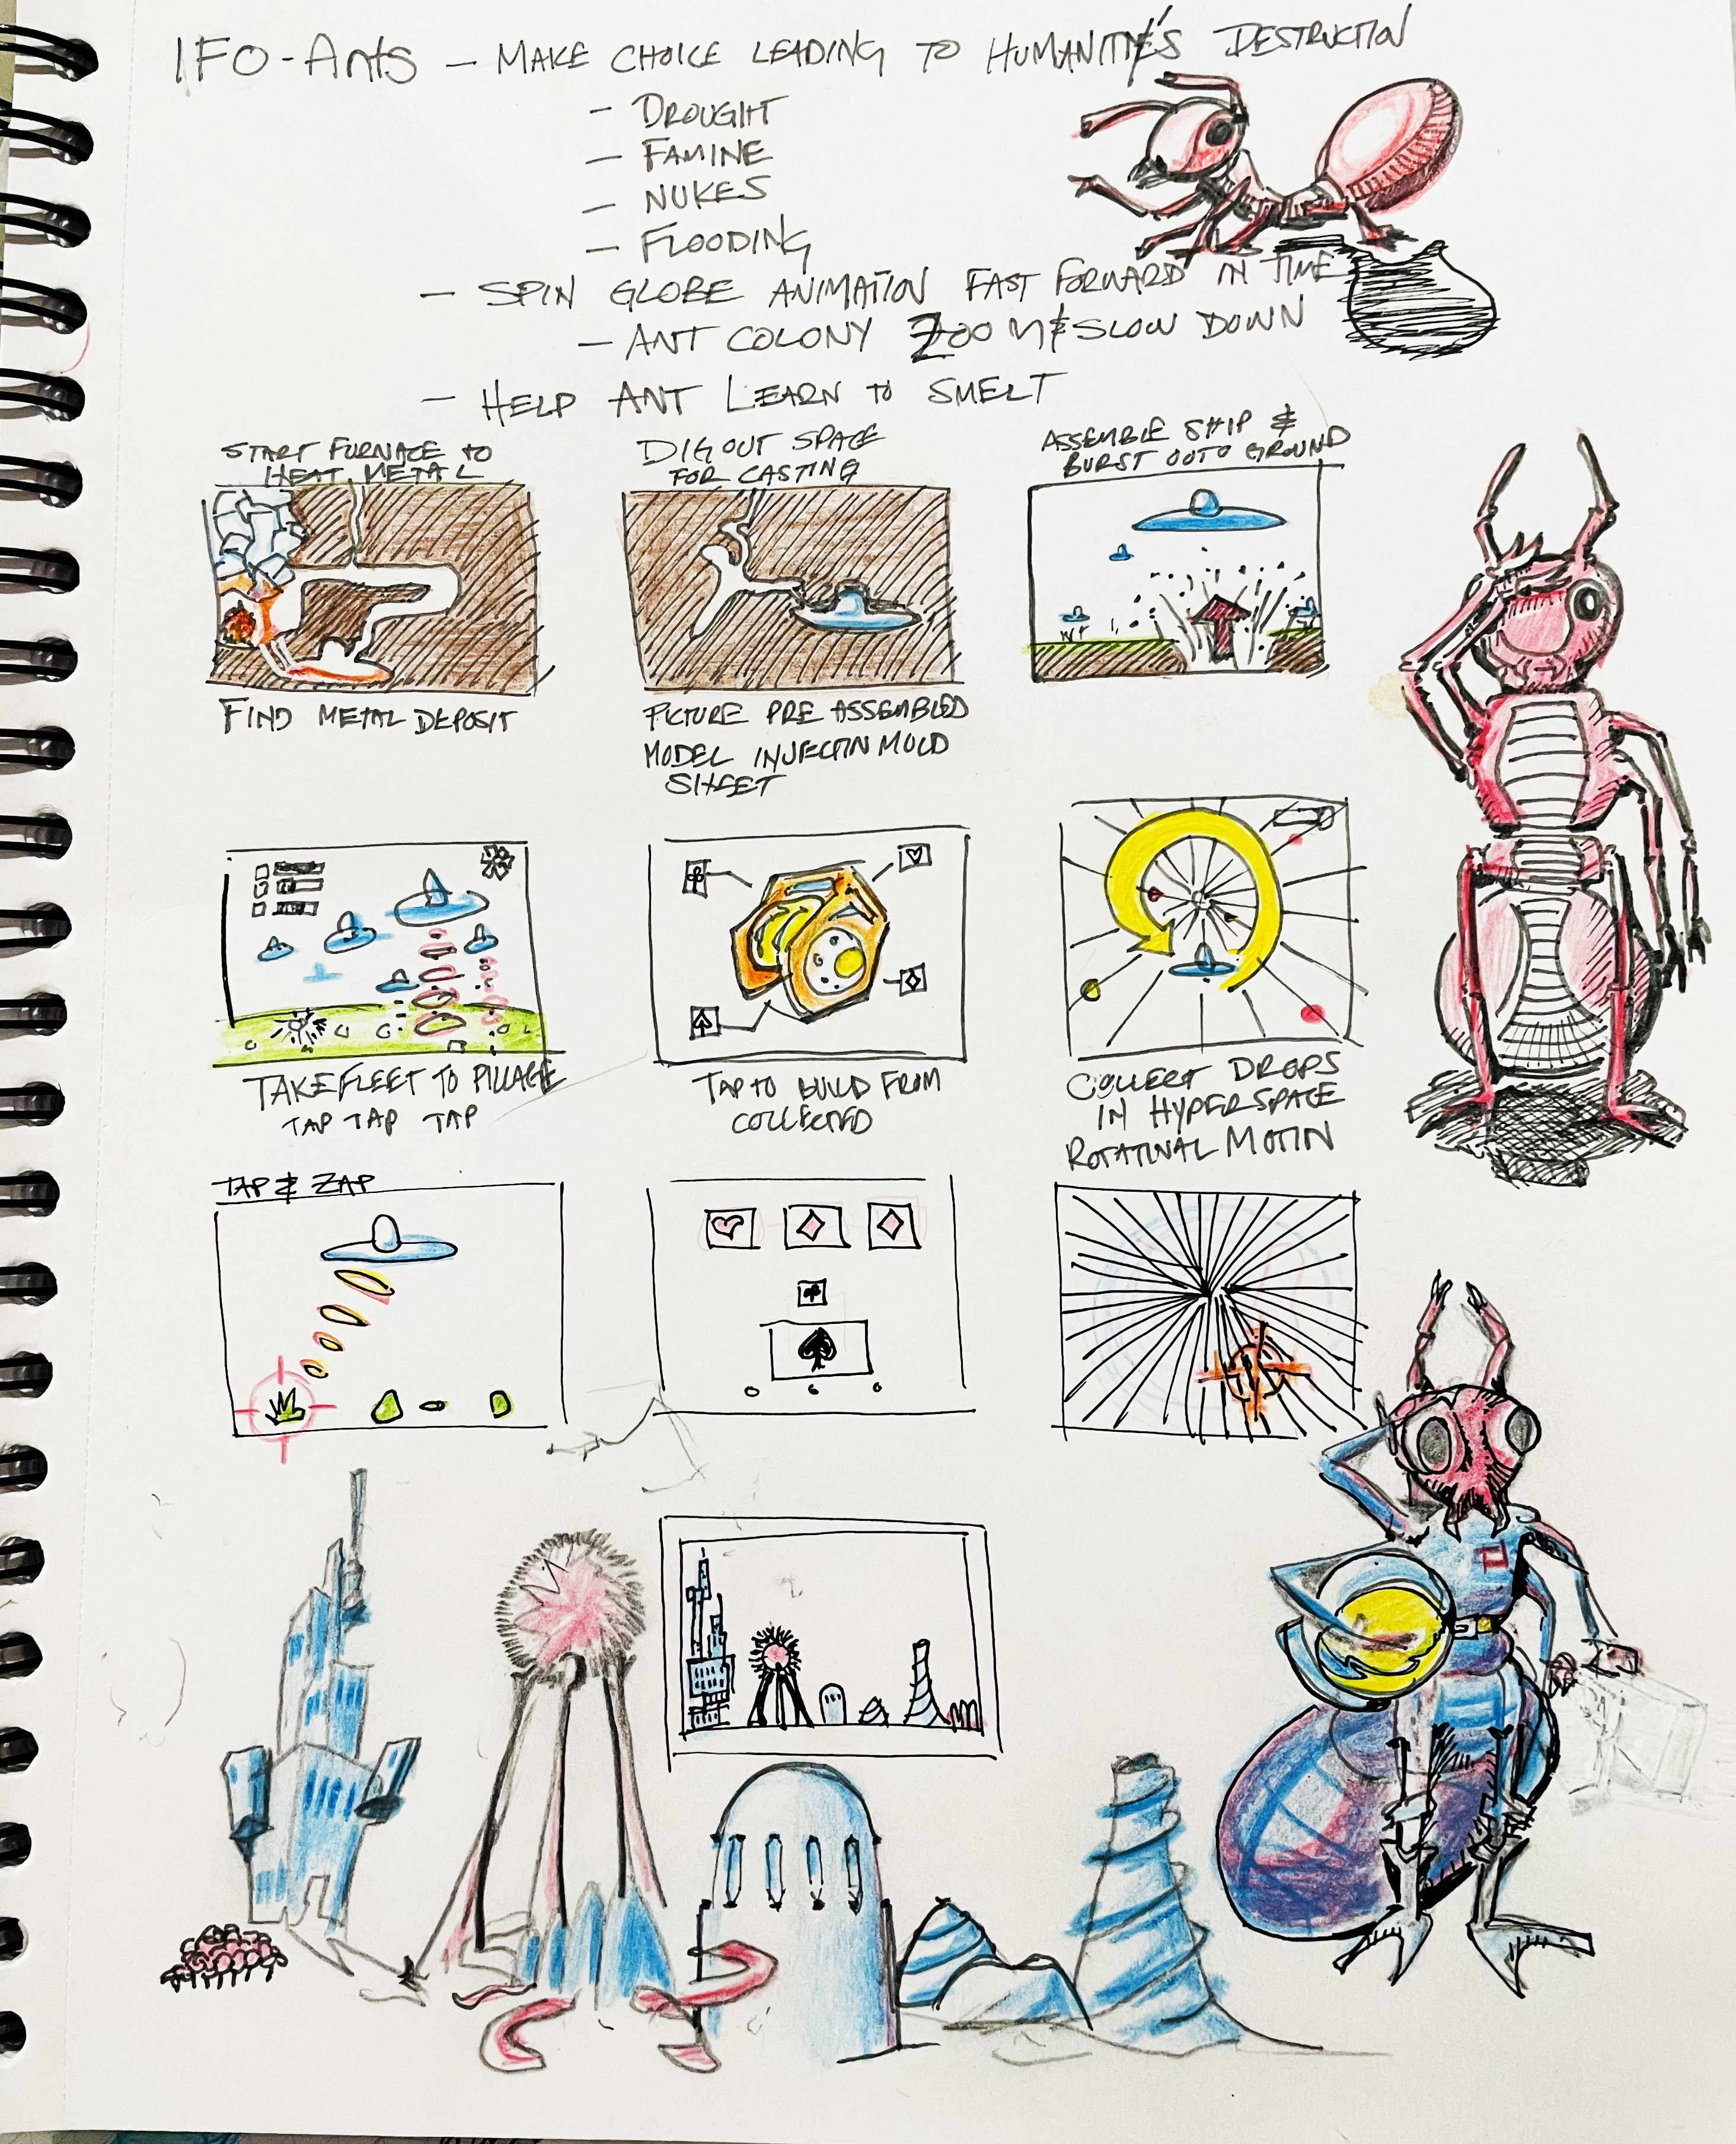 IFO-Ants — MAKE CHOICE LEADING TO HUMANITIE'S DESTRUCTION
— DROUGHT
— FAMINE
— NUKES
— FLOODING
— SPIN GLOBE ANIMATION FAST FORWARD IN TIME
— ANT COLONY ZOOM & SLOW DOWN
— HELP ANT LEARN TO SMELT
START FURNACE TO
HEAT METAL
DIG OUT SPACE
FOR CASTING
ASSEMBLE SHIP &
BURST OUTO GROUND
FIND METAL DEPOSIT
PICTURE PRE ASSEMBLED
MODEL INJECTIN MOLD
SHEET
TAKE FLEET TO PILLAGE
TAP TAP TAP
TAP TO BUILD FROM
COLLECTED
COLLECT DROPS
IN HYPERSPACE
ROTATINAL MOTIN
TAP & ZAP